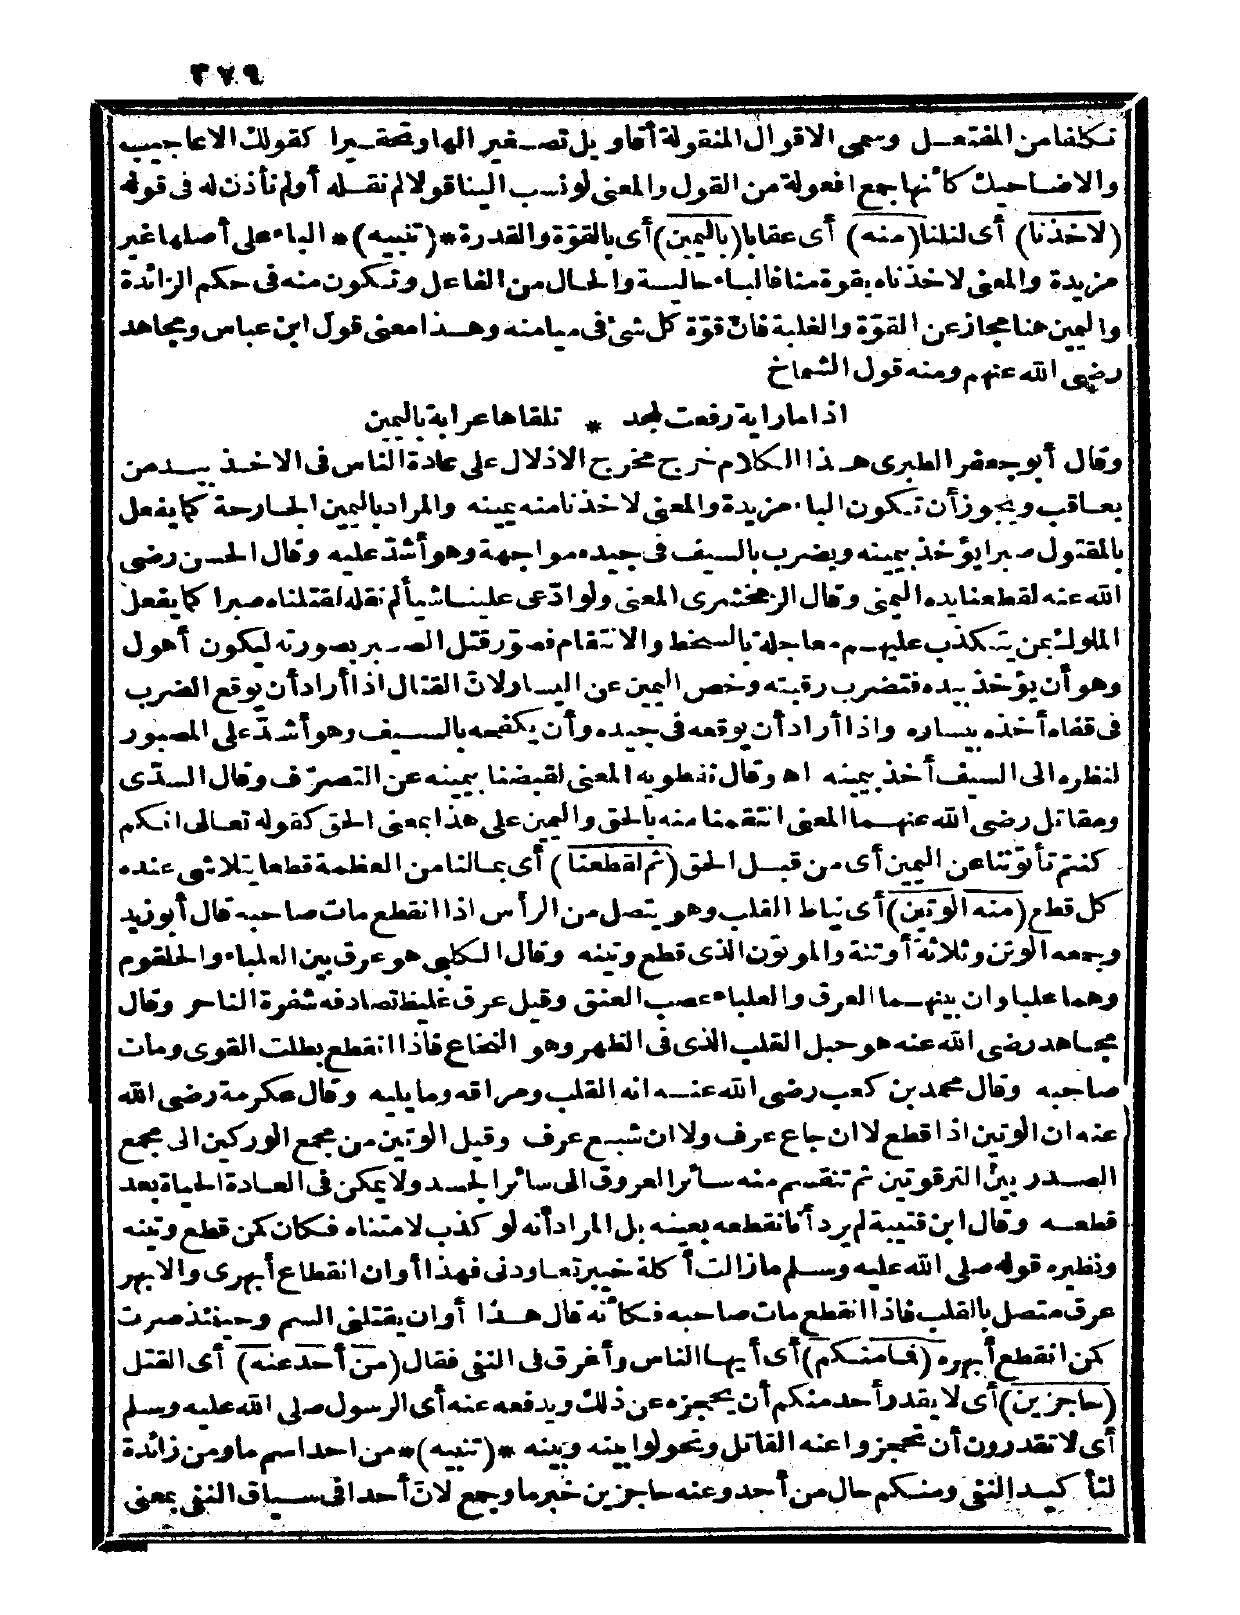 ٣٧٩
تكلفا من المفتعل وسمى الاقوال المنقولة أقاويل تصغير الها وتحقيرا كقولك الاعاجيب
والاضاحيك كأنها جمع افعولة من القول والمعنى لو نسب الينا قولا لم نقله أولم نأذن له فى قوله
(لاخذنا) أى لنلنا (منه) أى عقابا (باليمين) أى بالقوّة والقدرة *(تنبيه)* الباء على أصلها غير
مزيدة والمعنى لاخذناه بقوة منا فالباء حالية والحال من الفاعل وتكون منه فى حكم الزائدة
واليمين هنا مجاز عن القوّة والغلبة فانّ قوّة كل شئ فى ميامنه وهذا معنى قول ابن عباس ومجاهد
رضى الله عنهم ومنه قول الشماخ
اذا ما راية رفعت لمجد * تلقاها عرابة باليمين
وقال أبو جعفر الطبرى هذا الكلام خرج مخرج الاذلال على عادة الناس فى الاخذ بيد من
يعاقب ويجوز أن تكون الباء مزيدة والمعنى لاخذنا منه يمينه والمراد باليمين الجارحة كما يفعل
بالمقتول صبرا يؤخذ بيمينه ويضرب بالسيف فى جيده مواجهة وهو أشدّ عليه وقال الحسن رضى
الله عنه لقطعنا يده اليمنى وقال الزمخشرى المعنى ولو ادّعى علينا شيأ لم نقله لقتلناه صبرا كما يفعل
الملوك بمن يتكذب عليهم معاجلة بالسخط والانتقام فصوّر قتل الصبر بصورته ليكون أهول
وهو أن يؤخذ بيده فتضرب رقبته وخص اليمين عن اليسار لانّ القتال اذا أراد أن يوقع الضرب
فى قفاه أخذه بيساره واذا أراد أن يوقعه فى جيده وأن يكفحه بالسيف وهو أشدّ على المصبور
لنظره الى السيف أخذ بيمينه اه وقال نفطويه المعنى لقبضنا بيمينه عن التصرّف وقال السدّى
ومقاتل رضى الله عنهما المعنى انتقمنا منه بالحق واليمين على هذا بمعنى الحق كقوله تعالى انكم
كنتم تأتوننا عن اليمين أى من قبل الحق (ثم لقطعنا) أى بما لنا من العظمة قطعا يتلاشى عنده
كل قطع (منه الوتين) أى نياط القلب وهو يتصل من الرأس اذا انقطع مات صاحبه قال أبو زيد
وجمعه الوتن وثلاثة أوتنة والموتون الذى قطع وتينه وقال الكلبى هو عرق بين العلباء والحلقوم
وهما علباوان بينهما العرق والعلباء عصب العنق وقيل عرق غليظ تصادفه شفرة الناحر وقال
مجاهد رضى الله عنه هو حبل القلب الذى فى الظهر وهو النخاع فاذا انقطع بطلت القوى ومات
صاحبه وقال محمد بن كعب رضى الله عنه انه القلب ومراقه وما يليه وقال عكرمة رضى الله
عنه ان الوتين اذا قطع لا ان جاع عرف ولا ان شبع عرف وقيل الوتين من مجمع الوركين الى مجمع
الصدر بين الترقوتين ثم تنقسم منه سائر العروق الى سائر الجسد ولا يمكن فى العادة الحياة بعد
قطعه وقال ابن قتيبة لم يرد أنا نقطعه بعينه بل المراد أنه لو كذب لامتناه فكان كمن قطع وتينه
ونظيره قوله صلى الله عليه وسلم ما زالت أكلة خيبر تعاودنى فهذا أوان انقطاع أبهرى والابهر
عرق متصل بالقلب فاذا انقطع مات صاحبه فكأنه قال هذا أوان يقتلنى السم وحينئذ صرت
كمن انقطع أبهره (فما منكم) أى أيها الناس وأغرق فى النفى فقال (من أحد عنه) أى القتل
(حاجزين) أى لا يقدر أحد منكم أن يحجزه عن ذلك ويدفعه عنه أى الرسول صلى الله عليه وسلم
أى لا تقدرون أن تحجزوا عنه القاتل وتحولوا بينه وبينه *(تنبيه)* من احد اسم ما ومن زائدة
لتأكيد النفى ومنكم حال من أحد وعنه حاجزين خبر ما وجمع لانّ أحدا فى سياق النفى بمعنى